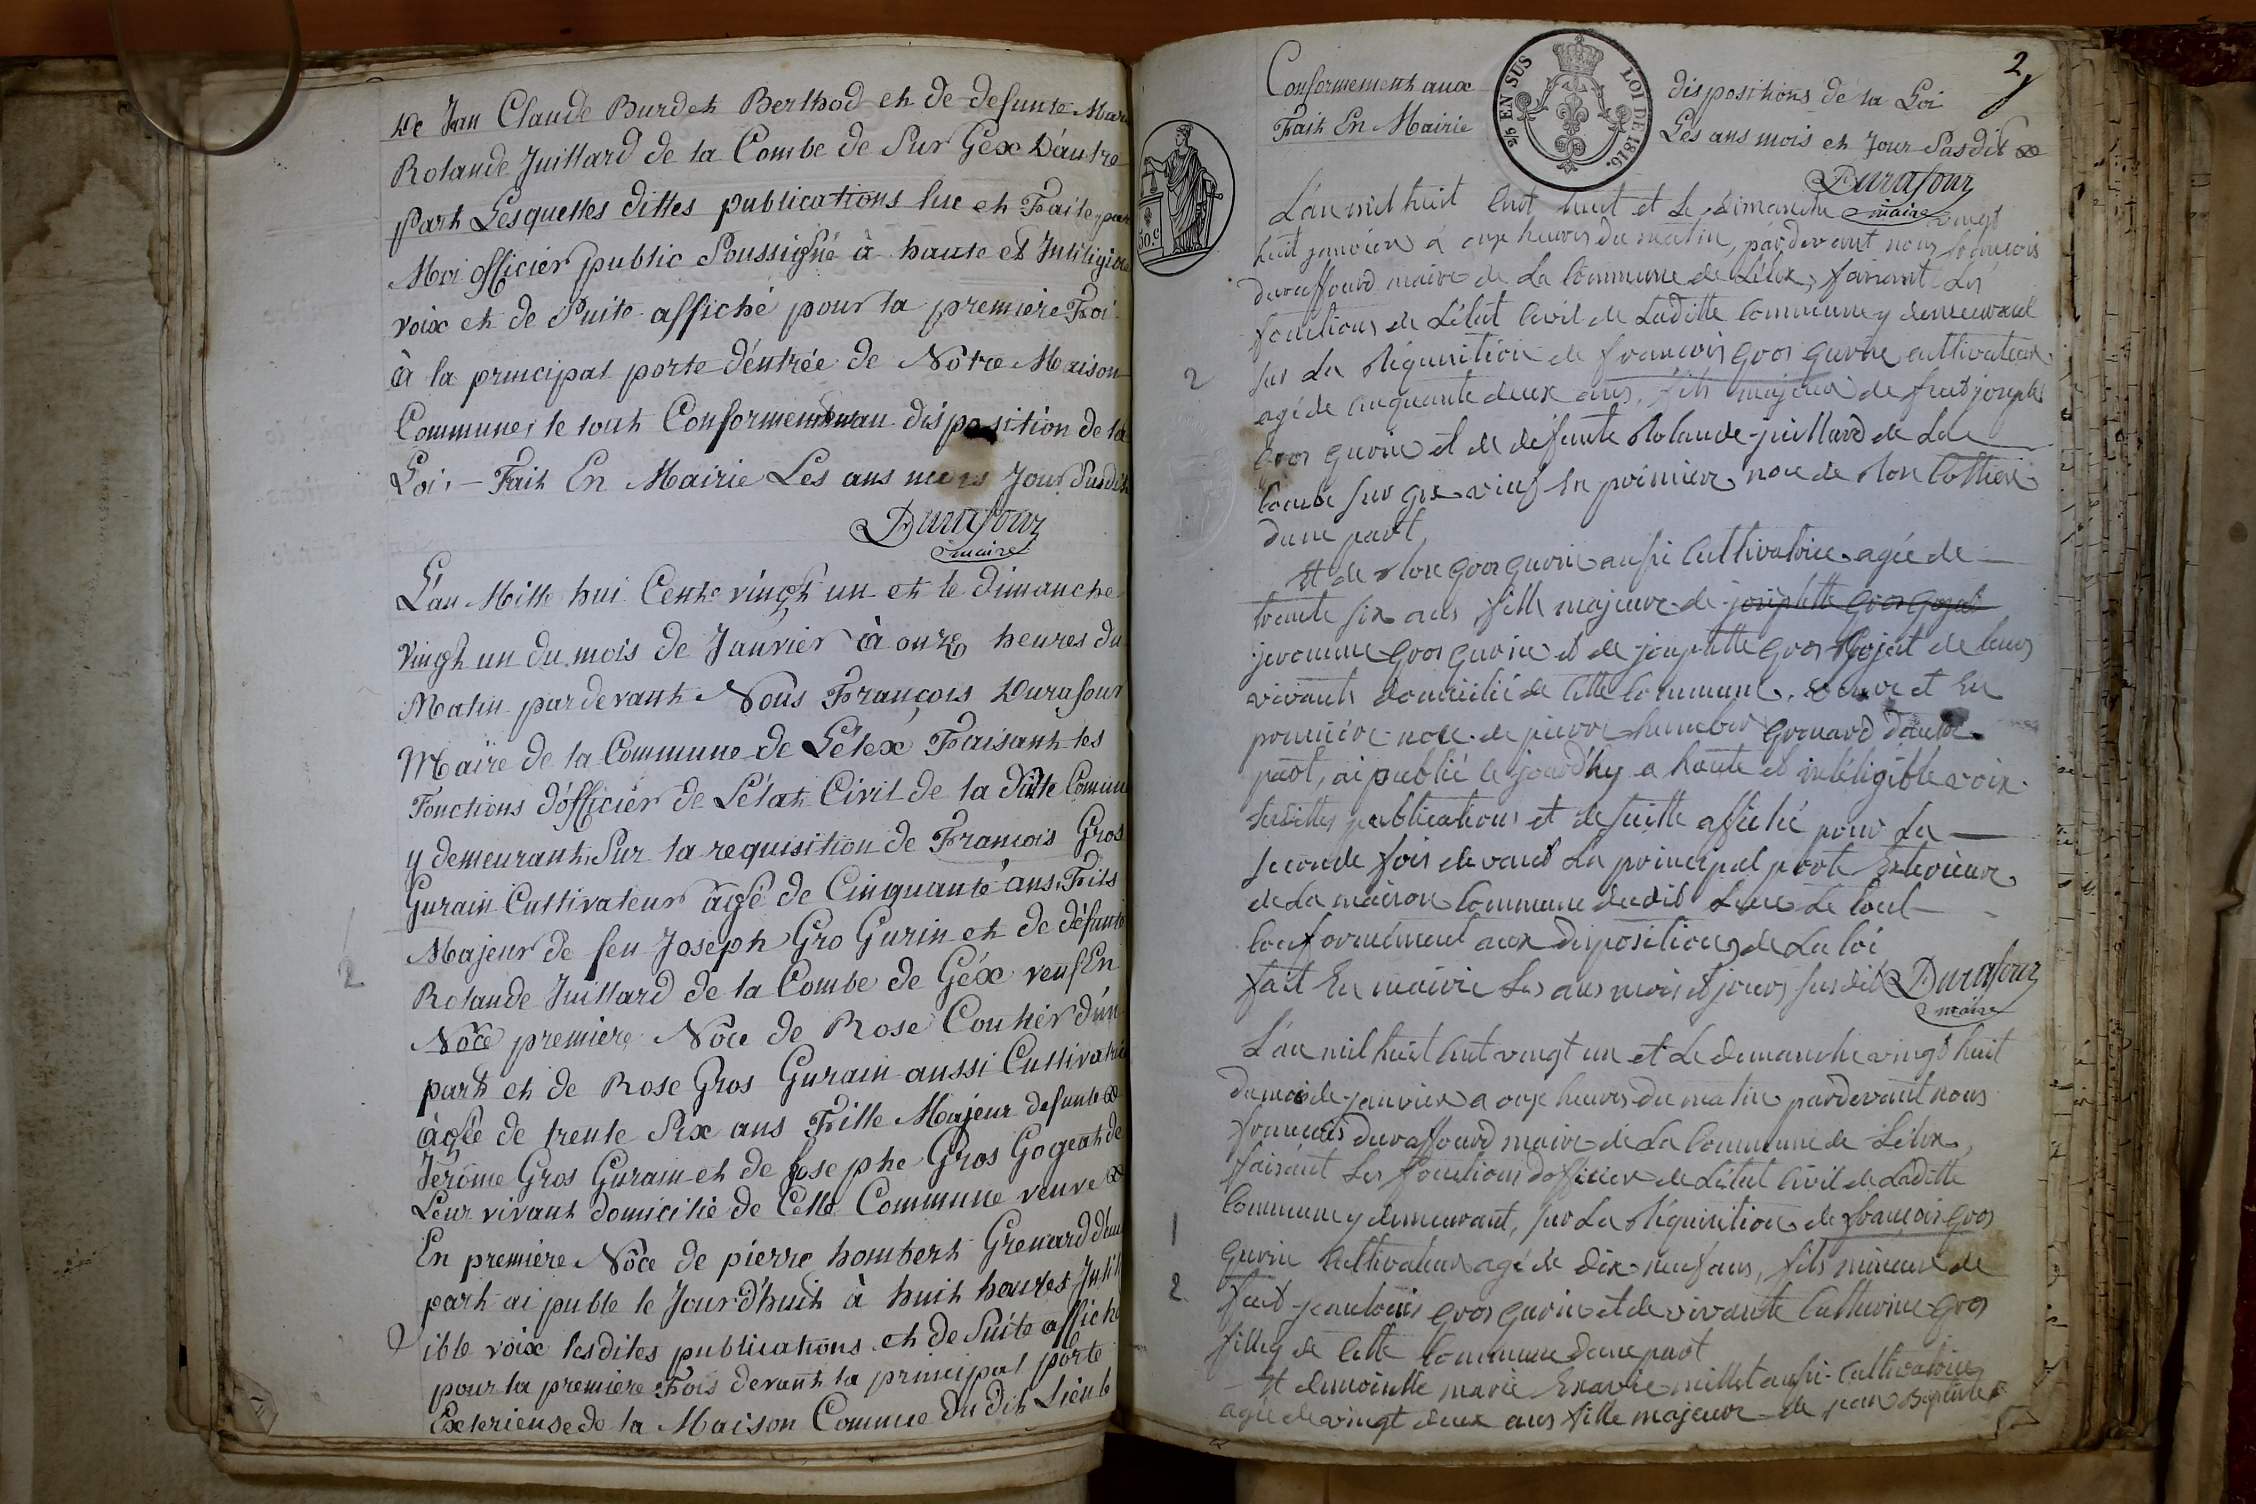 De Jan Claude Burdet Berthod et de defunte Mari
Rolande Juillard de la Combe de Sur Gex D'autre
part Lesquelles dittes publications lue et Faite par
Moi officier public Soussigné à haute et Intiligible
voix et de Suite affiché pour la premiere Foi
à la principal porte d'entrée de Nôtre Maison
Commune, le tout Conformement au disposition de la
Loi. - Fait En Mairie Les ans mois Jour Susdit
Durafour
maire
L'an Mille hui Cents vingt un et le Dimanche
vingt un du mois de Janvier à onze heures du
Matin pardevant Nous François Durafour
Maire de la Commune de Lélex Faisant les
Fonctions d'officier de L'état Civil de la ditte Comun
y demeurant, Sur la requisition de François Gros
Gurain Cultivateur âgé de Cinquante ans, Fils
Majeur de feu Joseph Gro Gurin et de défunte
2
Rolande Juillard de la Combe de Géx veuf En
Nôce premiere Nôce de Rose Coutier d'un
part et de Rose Gros Gurain aussi Cultivatri
âgée de trente Six ans Fille Majeur defunte
Jérôme Gros Gurain et de Josephe Gros Gogeat de
Leur vivant domicilié de Cette Commune veuve
En premiere Nôce de pierre hombert Grenard d'au
part ai puble le Jourd'huit à huit heures Intil
ible voix lesdites publications et de Suite affiche
pour la premiere Fois devant la principal porte
Exterieuse de la Maison Comme du dit Lieu le
2
Conformement aux dispositions de la Loi
Fait En Mairie Les ans mois et Jour Sasdit
2/5 EN SUS LOI DE 1816.
50.c
Durafour
maire
L'an mil huit Cent huit et Le Dimanche vingt
huit janvier à onze heures du matin, pardevant nous francois
duraffourd maire de La Commune de Lélex, faisant Les
fonctions de L'état Civil de Laditte Commune y demeurant
2
sur La Réquisition de francois gros gurin cultivateur
agé de cinquante deux ans, fils majeur de fut joseph
gros gurin et de defunte Rolande juillard de La
Combe sur gex vieuf En premier noce de Rose Cottier
dune part,
Et de Rose gros gurin aussi Cultivatrice agée de
trente six ans, fille majeure de josephette gros gojat
jeromme gros gurin et de josephette gros Gojat de leurs
vivants domicilié de Cette Commune, veuve et En
premiére noce de pierre humbert Grenard d'autre
part, ai publié le jourd'hy a haute et intéligible voix
Lesdittes publications et de suitte affiché pour La
seconde fois devant La principal porte Exterieur
de La maison Commune dudit Lieu Le tout
Conformément aux Dispositions de La loi
fait En mairie Les ans mois et jours susdit Durafour
maire
L'an mil huit cent vingt un et Le demanche vingt huit
du mois de janvier a onze heures du matin pardevant nous
francois duraffourd maire de La Commune de Lélex,
faisant Les fonctions d'officier de L'état Civil de Laditte
Commune y demeurant, sur La Réquisition de françois gros
1
gurin Cultivateur agé de dix-neuf ans, fils mineure de
2
fut jean louis gros gurin et de vivante Catherine gros
filley de Cette Commune dune part
Et demoiselle marie millet aussi Cultivatrice
agée de vingt deux ans fille majeure de jean Baptiste